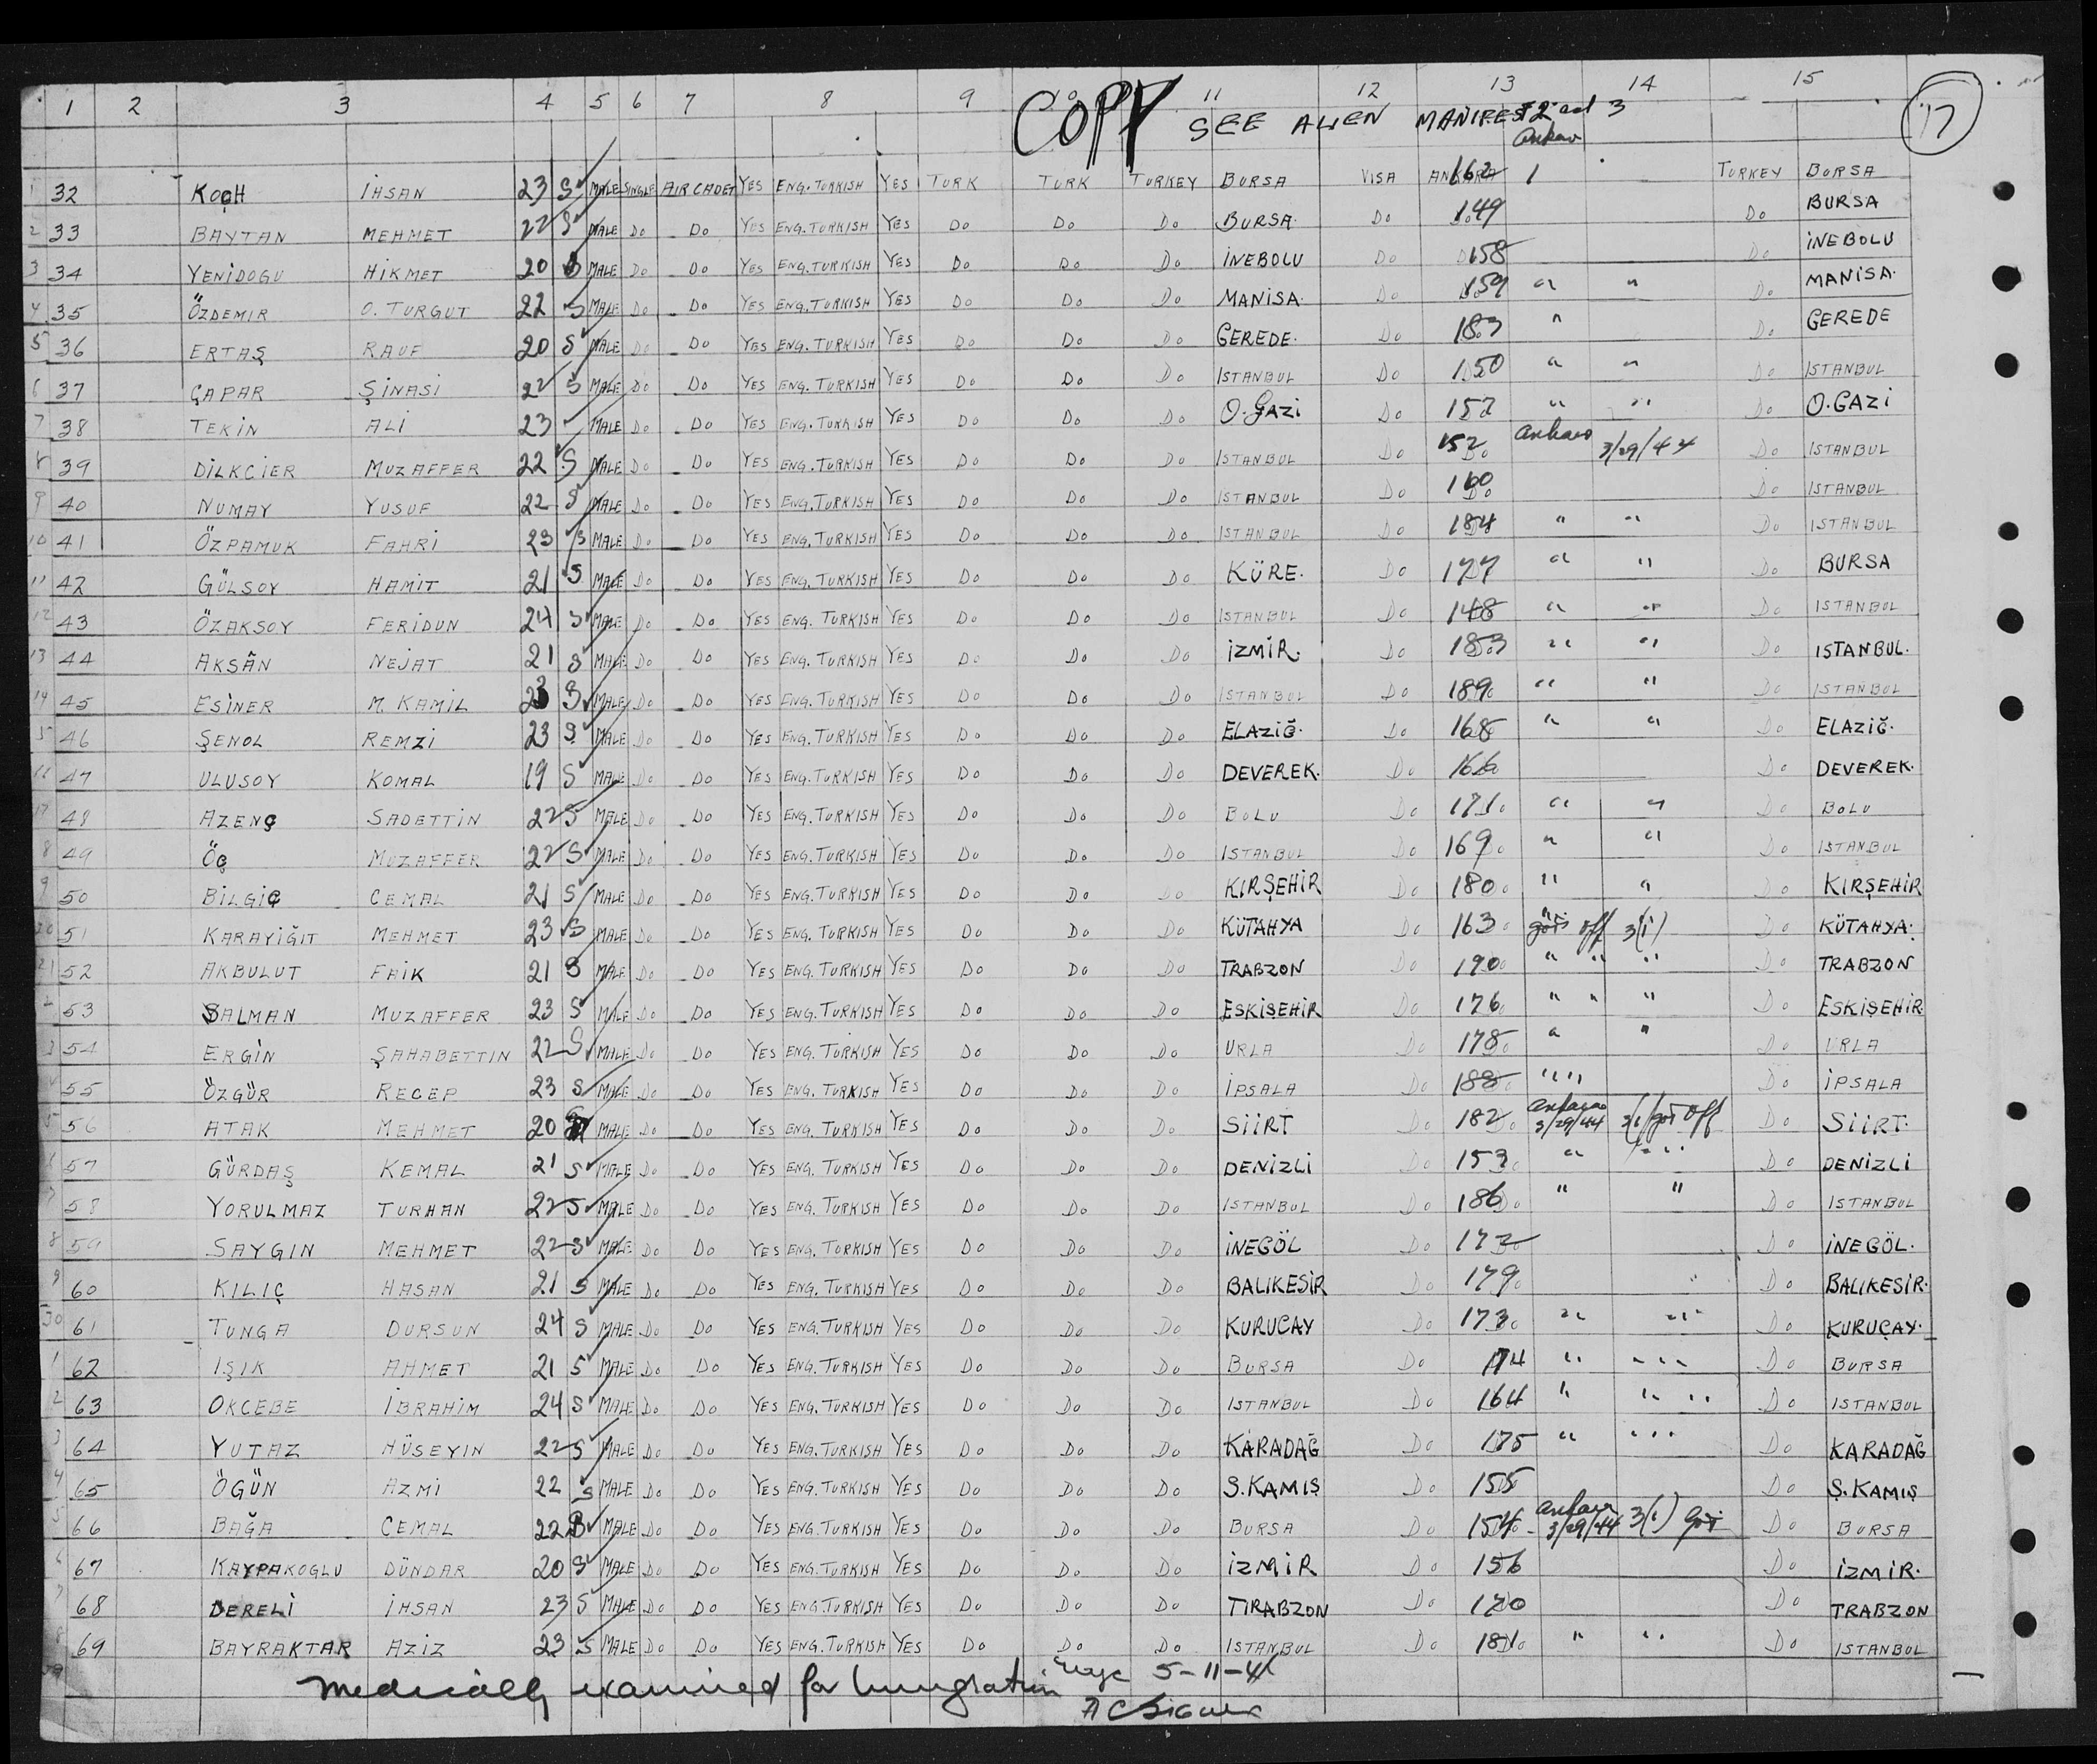 1 2 3 4 5 6 7 8 9 10 11 12 13 14 15
COPY SEE ALIEN MANIFEST 2 3 17
1 32 KOÇH İHSAN 23 S MALE SINGLE AIR CADET YES ENG. TURKISH YES TURK TURK TURKEY BURSA VISA ANKARA 162 1 TURKEY BURSA
2 33 BAYTAN MEHMET 22 S MALE Do Do YES ENG. TURKISH YES Do Do Do BURSA. Do 149 Do BURSA
3 34 YENİDOGU HİKMET 20 S MALE Do Do YES ENG. TURKISH YES Do Do Do İNEBOLU Do Do 158 Do İNEBOLU
4 35 ÖZDEMIR O. TURGUT 22 S MALE Do Do YES ENG. TURKISH YES Do Do Do MANİSA. Do 159 " " Do MANİSA.
5 36 ERTAŞ RAUF 20 S MALE Do Do YES ENG. TURKISH YES Do Do Do GEREDE. Do 183 " Do GEREDE
6 37 ÇAPAR ŞİNASİ 22 S MALE Do Do YES ENG. TURKISH YES Do Do Do ISTANBUL Do 150 " " Do ISTANBUL
7 38 TEKİN ALİ 23 MALE Do Do YES ENG. TURKISH YES Do Do Do O. GAZİ Do 157 " " Do O. GAZİ
8 39 DİLKCİER MUZAFFER 22 S MALE Do Do YES ENG. TURKISH YES Do Do Do ISTANBUL Do 152 Ankara 3/29/44 Do ISTANBUL
9 40 NUMAY YUSUF 22 S MALE Do Do YES ENG. TURKISH YES Do Do Do ISTANBUL Do 160 Do ISTANBUL
10 41 ÖZPAMUK FAHRİ 23 S MALE Do Do YES ENG. TURKISH YES Do Do Do ISTANBUL Do 184 " " Do ISTANBUL
11 42 GÜLSOY HAMİT 21 S MALE Do Do YES ENG. TURKISH YES Do Do Do KÜRE. Do 177 " " Do BURSA
12 43 ÖZAKSOY FERİDUN 24 S MALE Do Do YES ENG. TURKISH YES Do Do Do ISTANBUL Do 148 " " Do ISTANBUL
13 44 AKSÂN NEJAT 21 S MALE Do Do YES ENG. TURKISH YES Do Do Do İZMİR. Do 185 " " Do ISTANBUL.
14 45 ESİNER M. KAMİL 23 S MALE Do Do YES ENG. TURKISH YES Do Do Do ISTANBUL Do 189 " " Do ISTANBUL
15 46 ŞENOL REMZİ 23 S MALE Do Do YES ENG. TURKISH YES Do Do Do ELAZİĞ. Do 168 " " Do ELAZİĞ.
16 47 ULUSOY KOMAL 19 S MALE Do Do YES ENG. TURKISH YES Do Do Do DEVEREK. Do 166 Do DEVEREK.
17 48 AZENÇ SADETTİN 22 S MALE Do Do YES ENG. TURKISH YES Do Do Do BOLU Do 171 " " Do BOLU
8 49 ÖÇ MUZAFFER 22 S MALE Do Do YES ENG. TURKISH YES Do Do Do ISTANBUL Do 169 " " Do ISTANBUL
9 50 BİLGİÇ CEMAL 21 S MALE Do Do YES ENG. TURKISH YES Do Do Do KIRŞEHİR Do 180 " " Do KIRŞEHİR
20 51 KARAYİĞIT MEHMET 23 S MALE Do Do YES ENG. TURKISH YES Do Do Do KÜTAHYA Do 163 " got off 3(i) Do KÜTAHYA.
21 52 AKBULUT FAİK 21 S MALE Do Do YES ENG. TURKISH YES Do Do Do TRABZON Do 190 " " " Do TRABZON
2 53 SALMAN MUZAFFER 23 S MALE Do Do YES ENG. TURKISH YES Do Do Do ESKİŞEHİR Do 176 " " " Do ESKİŞEHİR.
3 54 ERGİN ŞAHABETTIN 22 S MALE Do Do YES ENG. TURKISH YES Do Do Do URLA Do 178 " " Do URLA
4 55 ÖZGÜR RECEP 23 S MALE Do Do YES ENG. TURKISH YES Do Do Do İPSALA Do 188 " " Do İPSALA
5 56 ATAK MEHMET 20 MALE Do Do YES ENG. TURKISH YES Do Do Do SİİRT Do 182 Ankara 3/29/44 3(i) got off Do SİİRT.
6 57 GÜRDAŞ KEMAL 21 S MALE Do Do YES ENG. TURKISH YES Do Do Do DENİZLİ Do 153 " " Do DENİZLİ
7 58 YORULMAZ TURHAN 22 S MALE Do Do YES ENG. TURKISH YES Do Do Do ISTANBUL Do 186 " " Do ISTANBUL
8 59 SAYGIN MEHMET 22 S MALE Do Do YES ENG. TURKISH YES Do Do Do İNEGÖL Do 172 Do İNEGÖL.
9 60 KILIÇ HASAN 21 S MALE Do Do YES ENG. TURKISH YES Do Do Do BALIKESİR Do 179 " Do BALIKESİR.
30 61 TUNGA DURSUN 24 S MALE Do Do YES ENG. TURKISH YES Do Do Do KURUCAY Do 173 " " Do KURUÇAY.
1 62 IŞIK AHMET 21 S MALE Do Do YES ENG. TURKISH YES Do Do Do BURSA Do 174 " " Do BURSA
2 63 OKCEBE İBRAHİM 24 S MALE Do Do YES ENG. TURKISH YES Do Do Do ISTANBUL Do 164 " " " Do ISTANBUL
3 64 YUTAZ HÜSEYIN 22 S MALE Do Do YES ENG. TURKISH YES Do Do Do KARADAĞ Do 175 " " Do KARADAĞ
4 65 ÖGÜN AZMİ 22 S MALE Do Do YES ENG. TURKISH YES Do Do Do S. KAMIŞ Do 155 Do Ş. KAMIŞ
5 66 BAĞA CEMAL 22 S MALE Do Do YES ENG. TURKISH YES Do Do Do BURSA Do 154 Ankara 3/29/44 3(i) Got Do BURSA
6 67 KAYPAKOGLU DÜNDAR 20 S MALE Do Do YES ENG. TURKISH YES Do Do Do İZMİR Do 156 Do İZMİR.
7 68 DERELİ İHSAN 23 S MALE Do Do YES ENG. TURKISH YES Do Do Do TIRABZON Do 170 Do TRABZON
8 69 BAYRAKTAR AZİZ 23 S MALE Do Do YES ENG. TURKISH YES Do Do Do ISTANBUL Do 181 " " Do ISTANBUL
Medically examined for Immigration 5-11-44